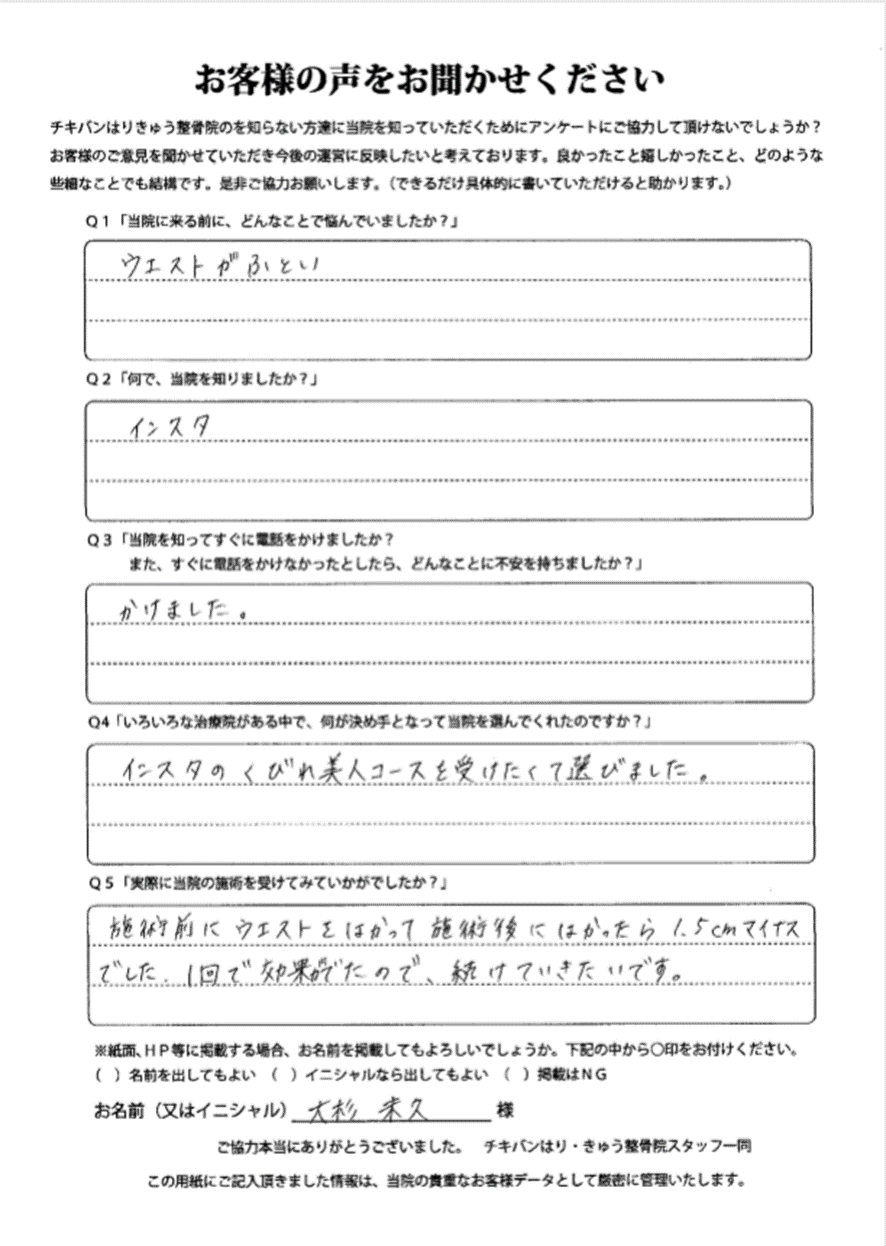 お客様の声をお聞かせください
チキバンはりきゅう整骨院のを知らない方達に当院を知っていただくためにアンケートにご協力して頂けないでしょうか？
お客様のご意見を聞かせていただき今後の運営に反映したいと考えております。良かったこと嬉しかったこと、どのような
些細なことでも結構です。是非ご協力お願いします。（できるだけ具体的に書いていただけると助かります。）
Ｑ１「当院に来る前に、どんなことで悩んでいましたか？」
ウエストがふとい
Ｑ２「何で、当院を知りましたか？」
インスタ
Ｑ３「当院を知ってすぐに電話をかけましたか？
また、すぐに電話をかけなかったとしたら、どんなことに不安を持ちましたか？」
かけました。
Q4「いろいろな治療院がある中で、何が決め手となって当院を選んでくれたのですか？」
インスタのくびれ美人コースを受けたくて選びました。
Ｑ５「実際に当院の施術を受けてみていかがでしたか？」
施術前にウエストをはかって施術後にはかったら1.5cmマイナス
でした.1回で効果がでたので、続けていきたいです。
※紙面、ＨＰ等に掲載する場合、お名前を掲載してもよろしいでしょうか。下記の中から〇印をお付けください。
（　）名前を出してもよい　（　）イニシャルなら出してもよい　（　）掲載はＮＧ
お名前（又はイニシャル）大杉 来久 様
ご協力本当にありがとうございました。　チキバンはり・きゅう整骨院スタッフ一同
この用紙にご記入頂きました情報は、当院の貴重なお客様データとして厳密に管理いたします。